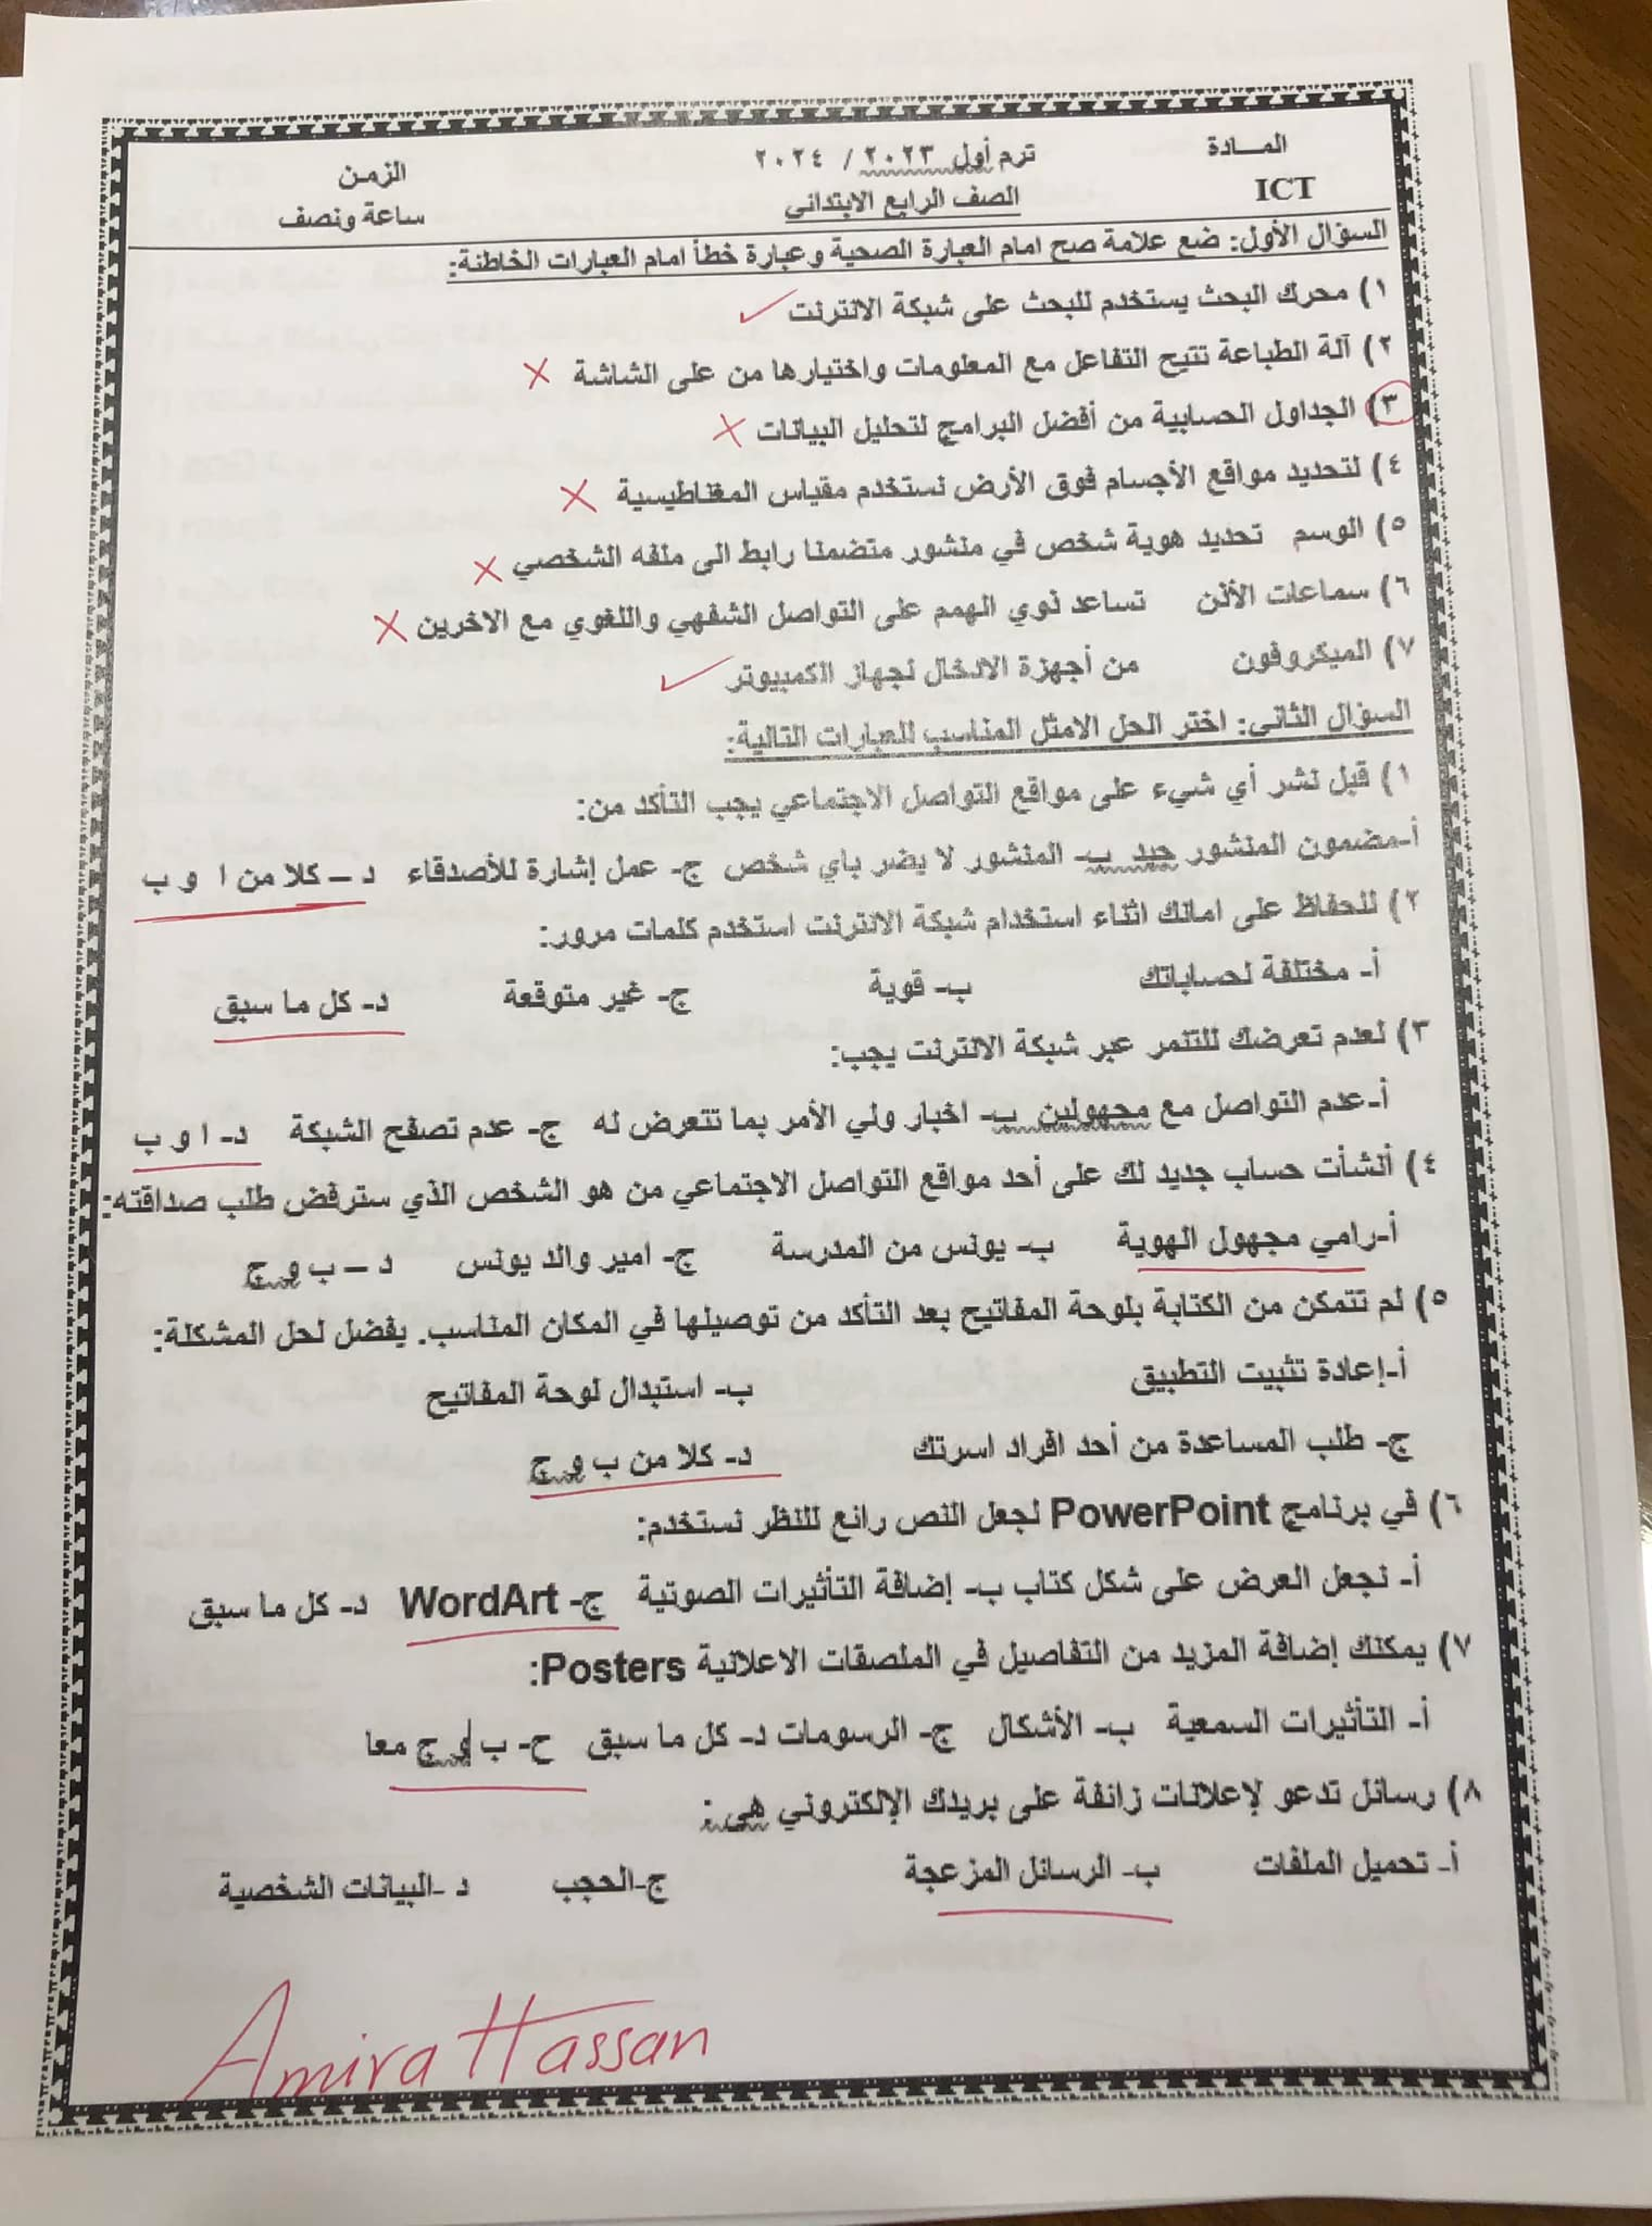 المـــادة ترم أول ٢٠٢٣ / ٢٠٢٤ الزمـن
ICT الصف الرابع الابتدائى ساعة ونصف
السؤال الأول: ضع علامة صح امام العبارة الصحية وعبارة خطأ امام العبارات الخاطئة:
١) محرك البحث يستخدم للبحث على شبكة الانترنت ✓
٢) آلة الطباعة تتيح التفاعل مع المعلومات واختيارها من على الشاشة ×
٣) الجداول الحسابية من أفضل البرامج لتحليل البيانات ×
٤) لتحديد مواقع الأجسام فوق الأرض نستخدم مقياس المغناطيسية ×
٥) الوسم تحديد هوية شخص في منشور متضمنا رابط الى ملفه الشخصي ×
٦) سماعات الأذن تساعد ذوي الهمم على التواصل الشفهي واللغوي مع الاخرين ×
٧) الميكروفون من أجهزة الادخال لجهاز الكمبيوتر ✓
السؤال الثانى: اختر الحل الامثل المناسب للعبارات التالية:
١) قبل نشر أي شيء على مواقع التواصل الاجتماعي يجب التأكد من:
أ-مضمون المنشور جيد ب- المنشور لا يضر باي شخص ج- عمل إشارة للأصدقاء د – كلا من ا و ب
٢) للحفاظ على امانك اثناء استخدام شبكة الانترنت استخدم كلمات مرور:
أ- مختلفة لحساباتك ب- قوية ج- غير متوقعة د- كل ما سبق
٣) لعدم تعرضك للتنمر عبر شبكة الانترنت يجب:
أ-عدم التواصل مع مجهولين ب- اخبار ولي الأمر بما تتعرض له ج- عدم تصفح الشبكة د- ا و ب
٤) أنشأت حساب جديد لك على أحد مواقع التواصل الاجتماعي من هو الشخص الذي سترفض طلب صداقته:
أ-رامي مجهول الهوية ب- يونس من المدرسة ج- امير والد يونس د – ب و ج
٥) لم تتمكن من الكتابة بلوحة المفاتيح بعد التأكد من توصيلها في المكان المناسب. يفضل لحل المشكلة:
أ-إعادة تثبيت التطبيق ب- استبدال لوحة المفاتيح
ج- طلب المساعدة من أحد افراد اسرتك د- كلا من ب و ج
٦) في برنامج PowerPoint لجعل النص رائع للنظر نستخدم:
أ- نجعل العرض على شكل كتاب ب- إضافة التأثيرات الصوتية ج- WordArt د- كل ما سبق
٧) يمكنك إضافة المزيد من التفاصيل في الملصقات الاعلانية Posters:
أ- التأثيرات السمعية ب- الأشكال ج- الرسومات د- كل ما سبق ح- ب و ج معا
٨) رسائل تدعو لإعلانات زائفة على بريدك الإلكتروني هى :
أ- تحميل الملفات ب- الرسائل المزعجة ج-الحجب د -البيانات الشخصية
Amira Hassan